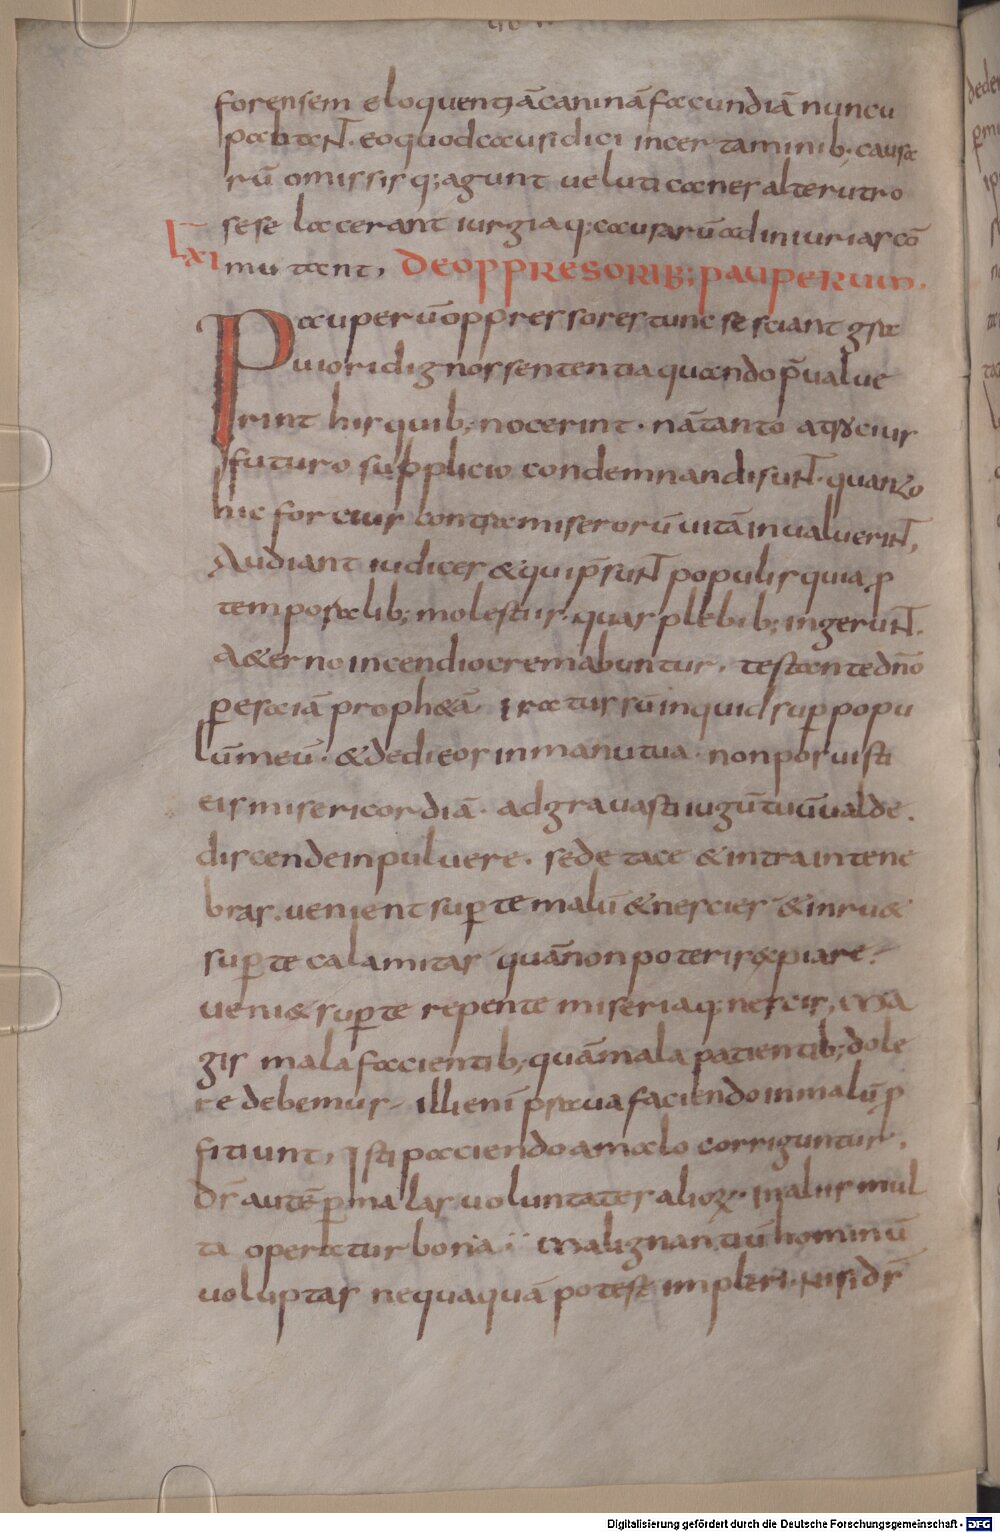 forensem eloquentiā caninā facundiā nuncu
pabant· eo quod causidici in certaminib; causa
rū omissis q; agunt uelut canes alterutro
sese lacerant iurgiaq; causarū ad iniurias cō
LXI mutant, DE OPPRESORIB; PAUPERUM.
Pauperū oppressores tunc se sciant gra
uiori dignos sententia quando p̄ualue
rint his quib; nocerint· nā tanto atrocius
futuro supplicio condemnandi sunt· quanto
hic fortius contra miserorū uitā inualuerint,
Audiant iudices & qui p̄sunt populis quia p
temporalib; molestiis· quas plebib; ingerunt·
A&erno incendio cremabuntur, testante dn̄o
p esaiā proph&ā· iratus sū inquid sup popu
lū meū· & dedi eos in manu tua· non posuisti
eis misericordiā· adgrauasti iugū tuū ualde.
discende in puluere· sede tace & intra in tene
bras. uenient sup te malū & nescies & inru&
sup te calamitas quā non poteris expiare·
ueni& sup te repente miseria q; nescis, Ma
gis mala facientib; quā mala patientib; dole
re debemus illi enī praua faciendo in malū p
ficiunt, isti paciendo a malo corriguntur,
Ds̄ autē p malas uoluntates alioꝝ· in aliis mul
ta operatur bona· Malignantiū hominū
uoluptas nequaquā potest impleri· nisi ds̄
Digitalisierung gefördert durch die Deutsche Forschungsgemeinschaft - DFG